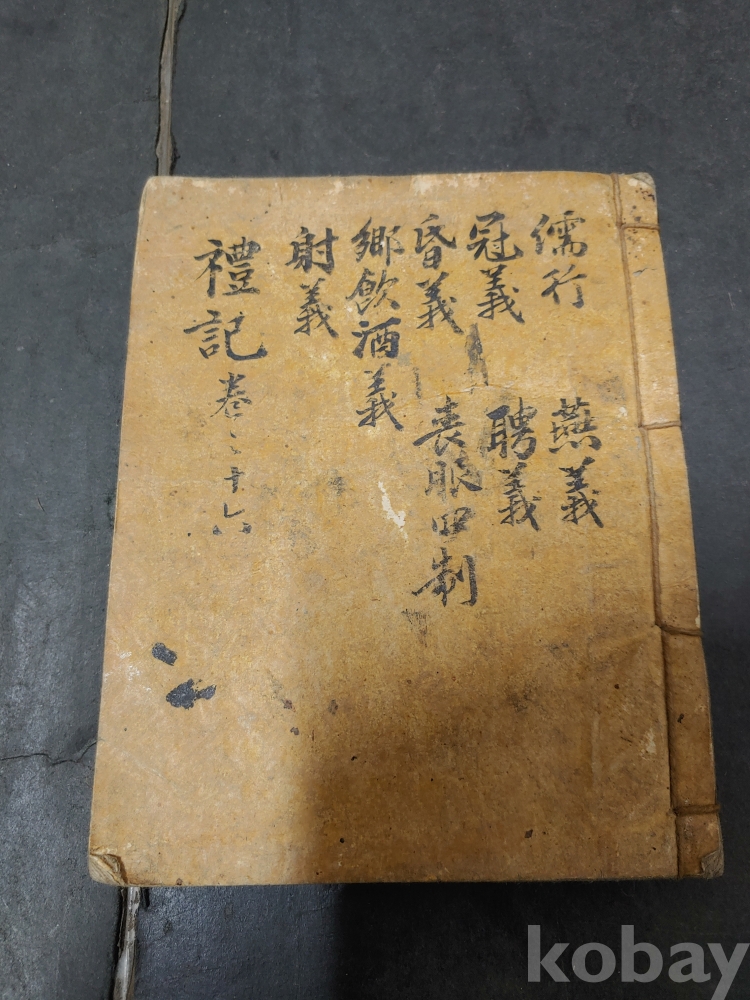 儒行 燕義
冠義 聘義
昏義 喪服四制
鄉飮酒義
射義
禮記 卷之十六
kobay